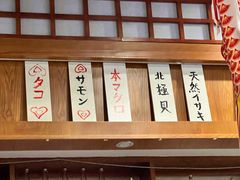 タコ
サーモン
本マグロ
北極貝
天然イサキ